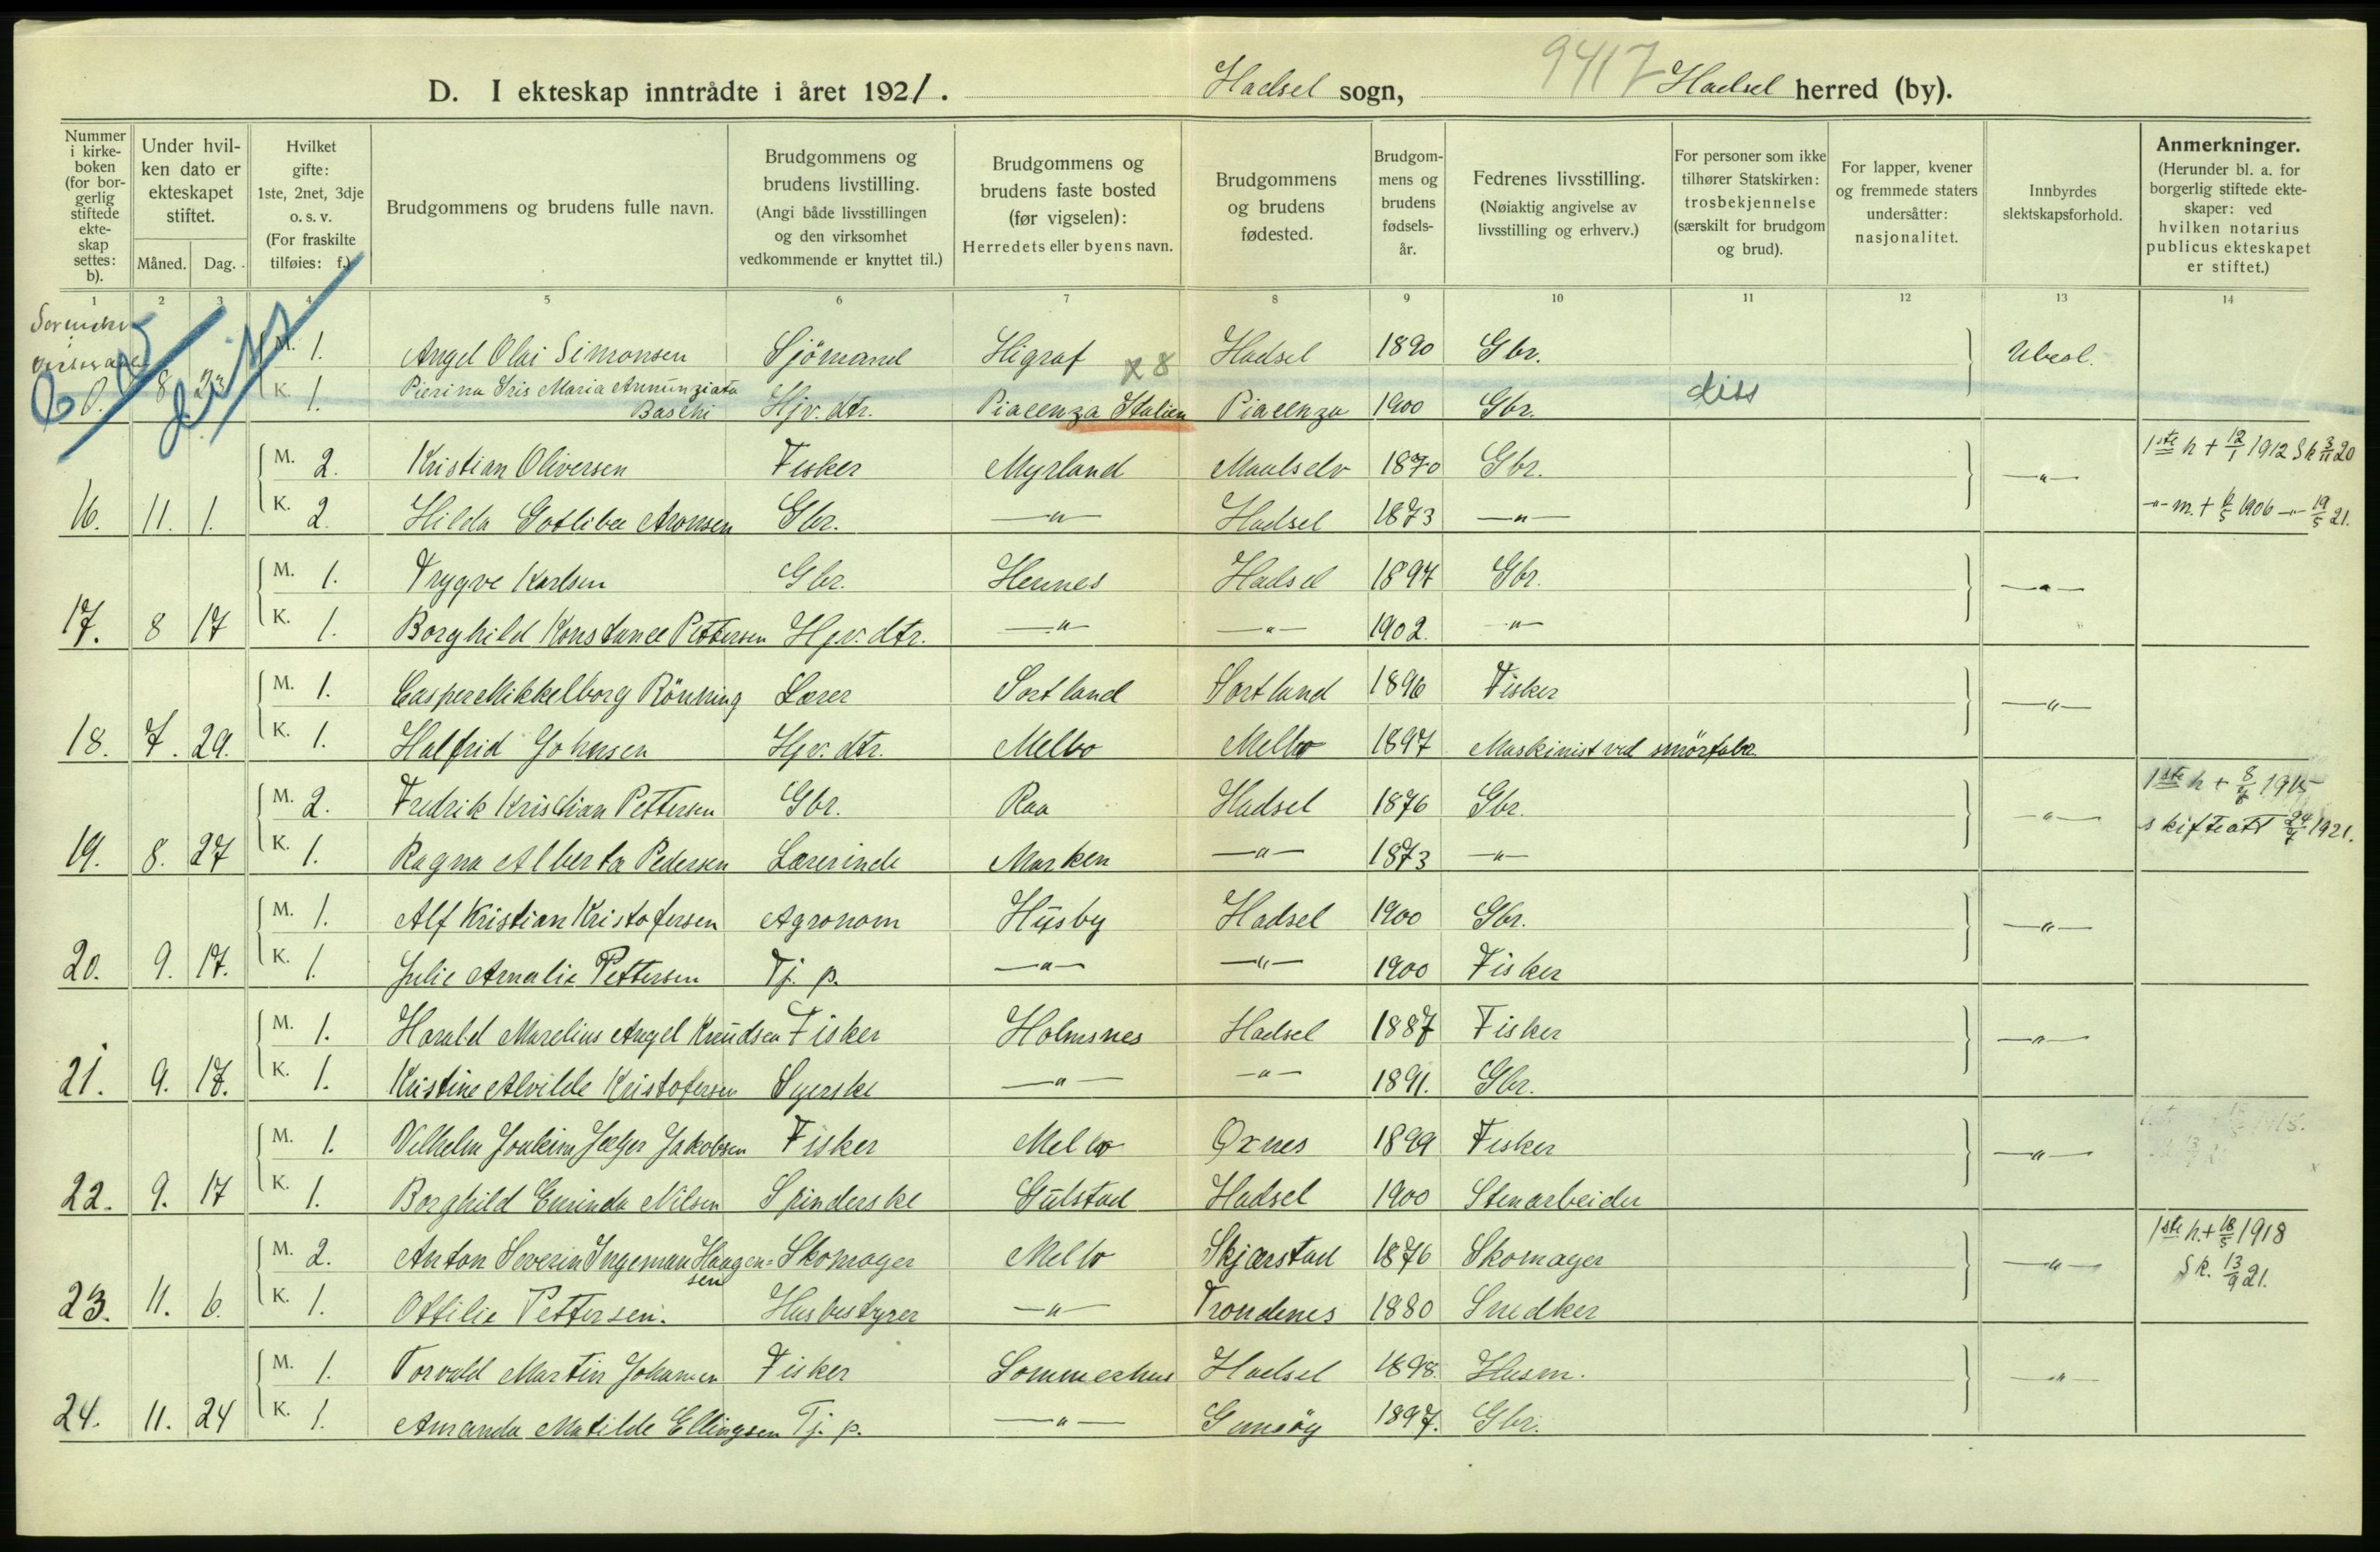 9417
D. I ekteskap inntrådte i året 1921. Hadsel sogn, Hadsel herred (by).
Nummer i kirkeboken (for borgerlig stiftede ekteskap settes: b).
Under hvilken dato er ekteskapet stiftet.
Måned. Dag.
Hvilket gifte: 1ste, 2net, 3dje o. s. v. (For fraskilte tilføies: f.)
Brudgommens og brudens fulle navn.
Brudgommens og brudens livstilling. (Angi både livsstillingen og den virksomhet vedkommende er knyttet til.)
Brudgommens og brudens faste bosted (før vigselen): Herredets eller byens navn.
Brudgommens og brudens fødested.
Brudgommens og brudens fødsels-år.
Fedrenes livsstilling. (Nøiaktig angivelse av livsstilling og erhverv.)
For personer som ikke tilhører Statskirken: trosbekjennelse (særskilt for brudgom og brud).
For lapper, kvener og fremmede staters undersåtter: nasjonalitet.
Innbyrdes slektskapsforhold.
Anmerkninger. (Herunder bl. a. for borgerlig stiftede ekteskaper: ved hvilken notarius publicus ekteskapet er stiftet.)
1 2 3 4 5 6 7 8 9 10 11 12 13 14
M. 1. Angel Olai Simonsen Sjömand Higraf x8 Hadsel 1890 Gbr. Ubesl.
8 23 K. 1. Pierina Iris Maria Annunziata Baschi Hjv. dtr. Piacenza Italien Piacenza 1900 Gbr. diss
M. 2. Kristian Oliversen Fisker Myrland Maalselv 1870 Gbr. —„— 1ste h + 12/1 1912 Sk 3/11 20
16. 11. 1. K. 2. Hilda Gotliba Aronsen Gbr. —„— Hadsel 1873 —„— —„— m. + 6/5 1906 —„— 19/5 21.
M. 1. Trygve Karlsen Gbr. Hennes Hadsel 1897 Gbr. —„—
17. 8 17 K. 1. Borghild Konstance Pettersen Hjv. dtr. —„— —„— 1902. —„—
M. 1. Casper Mikkelborg Rönning Lærer Sortland Sortland 1896 Fisker —„—
18. 7. 29. K. 1. Halfrid Johnsen Hjv. dtr. Melbo Melbo 1897 Maskinist ved smörfabr.
M. 2. Fredrik Kristian Pettersen Gbr. Raa Hadsel 1876 Gbr. —„— 1ste h + 8/8 1915
19. 8. 27 K. 1. Ragna Alberta Pedersen Lærerinde Marken —„— 1873 —„— skifteatt 24/7 1921.
M. 1. Alf Kristian Kristofersen Agronom Husby Hadsel 1900 Gbr. —„—
20. 9. 17. K. 1. Julie Amalie Pettersen Tj. p. —„— —„— 1900 Fisker
M. 1. Harald Marelius Angel Knudsen Fisker Holmsnes Hadsel 1887 Fisker —„—
21. 9. 17. K. 1. Kristine Alvilde Kristofersen Syerske —„— —„— 1891. Gbr.
M. 1. Vilhelm Joakim Jæger Jakobsen Fisker Melbo Öxnes 1899 Fisker —„—
22. 9. 17 K. 1. Borghild Enrinda Nilsen Spinderske Gulstad Hadsel 1900 Stenarbeider
M. 2. Anton Severin Ingeman Haagen=sen Skomager Melbo Skjærstad 1876 Skomager —„— 1ste h. + 18/5 1918
23. 11. 6. K. 1. Ottilie Pettersen. Husbestyrer —„— Trondenes 1880 Snedker Sk. 13/9 21.
M. 1. Torvald Martin Johansen Fisker Sommerhus Hadsel 1898. Husm. —„—
24. 11. 24 K. 1. Amanda Matilde Ellingsen Tj. p. —„— Gimsöy 1897. Gbr.